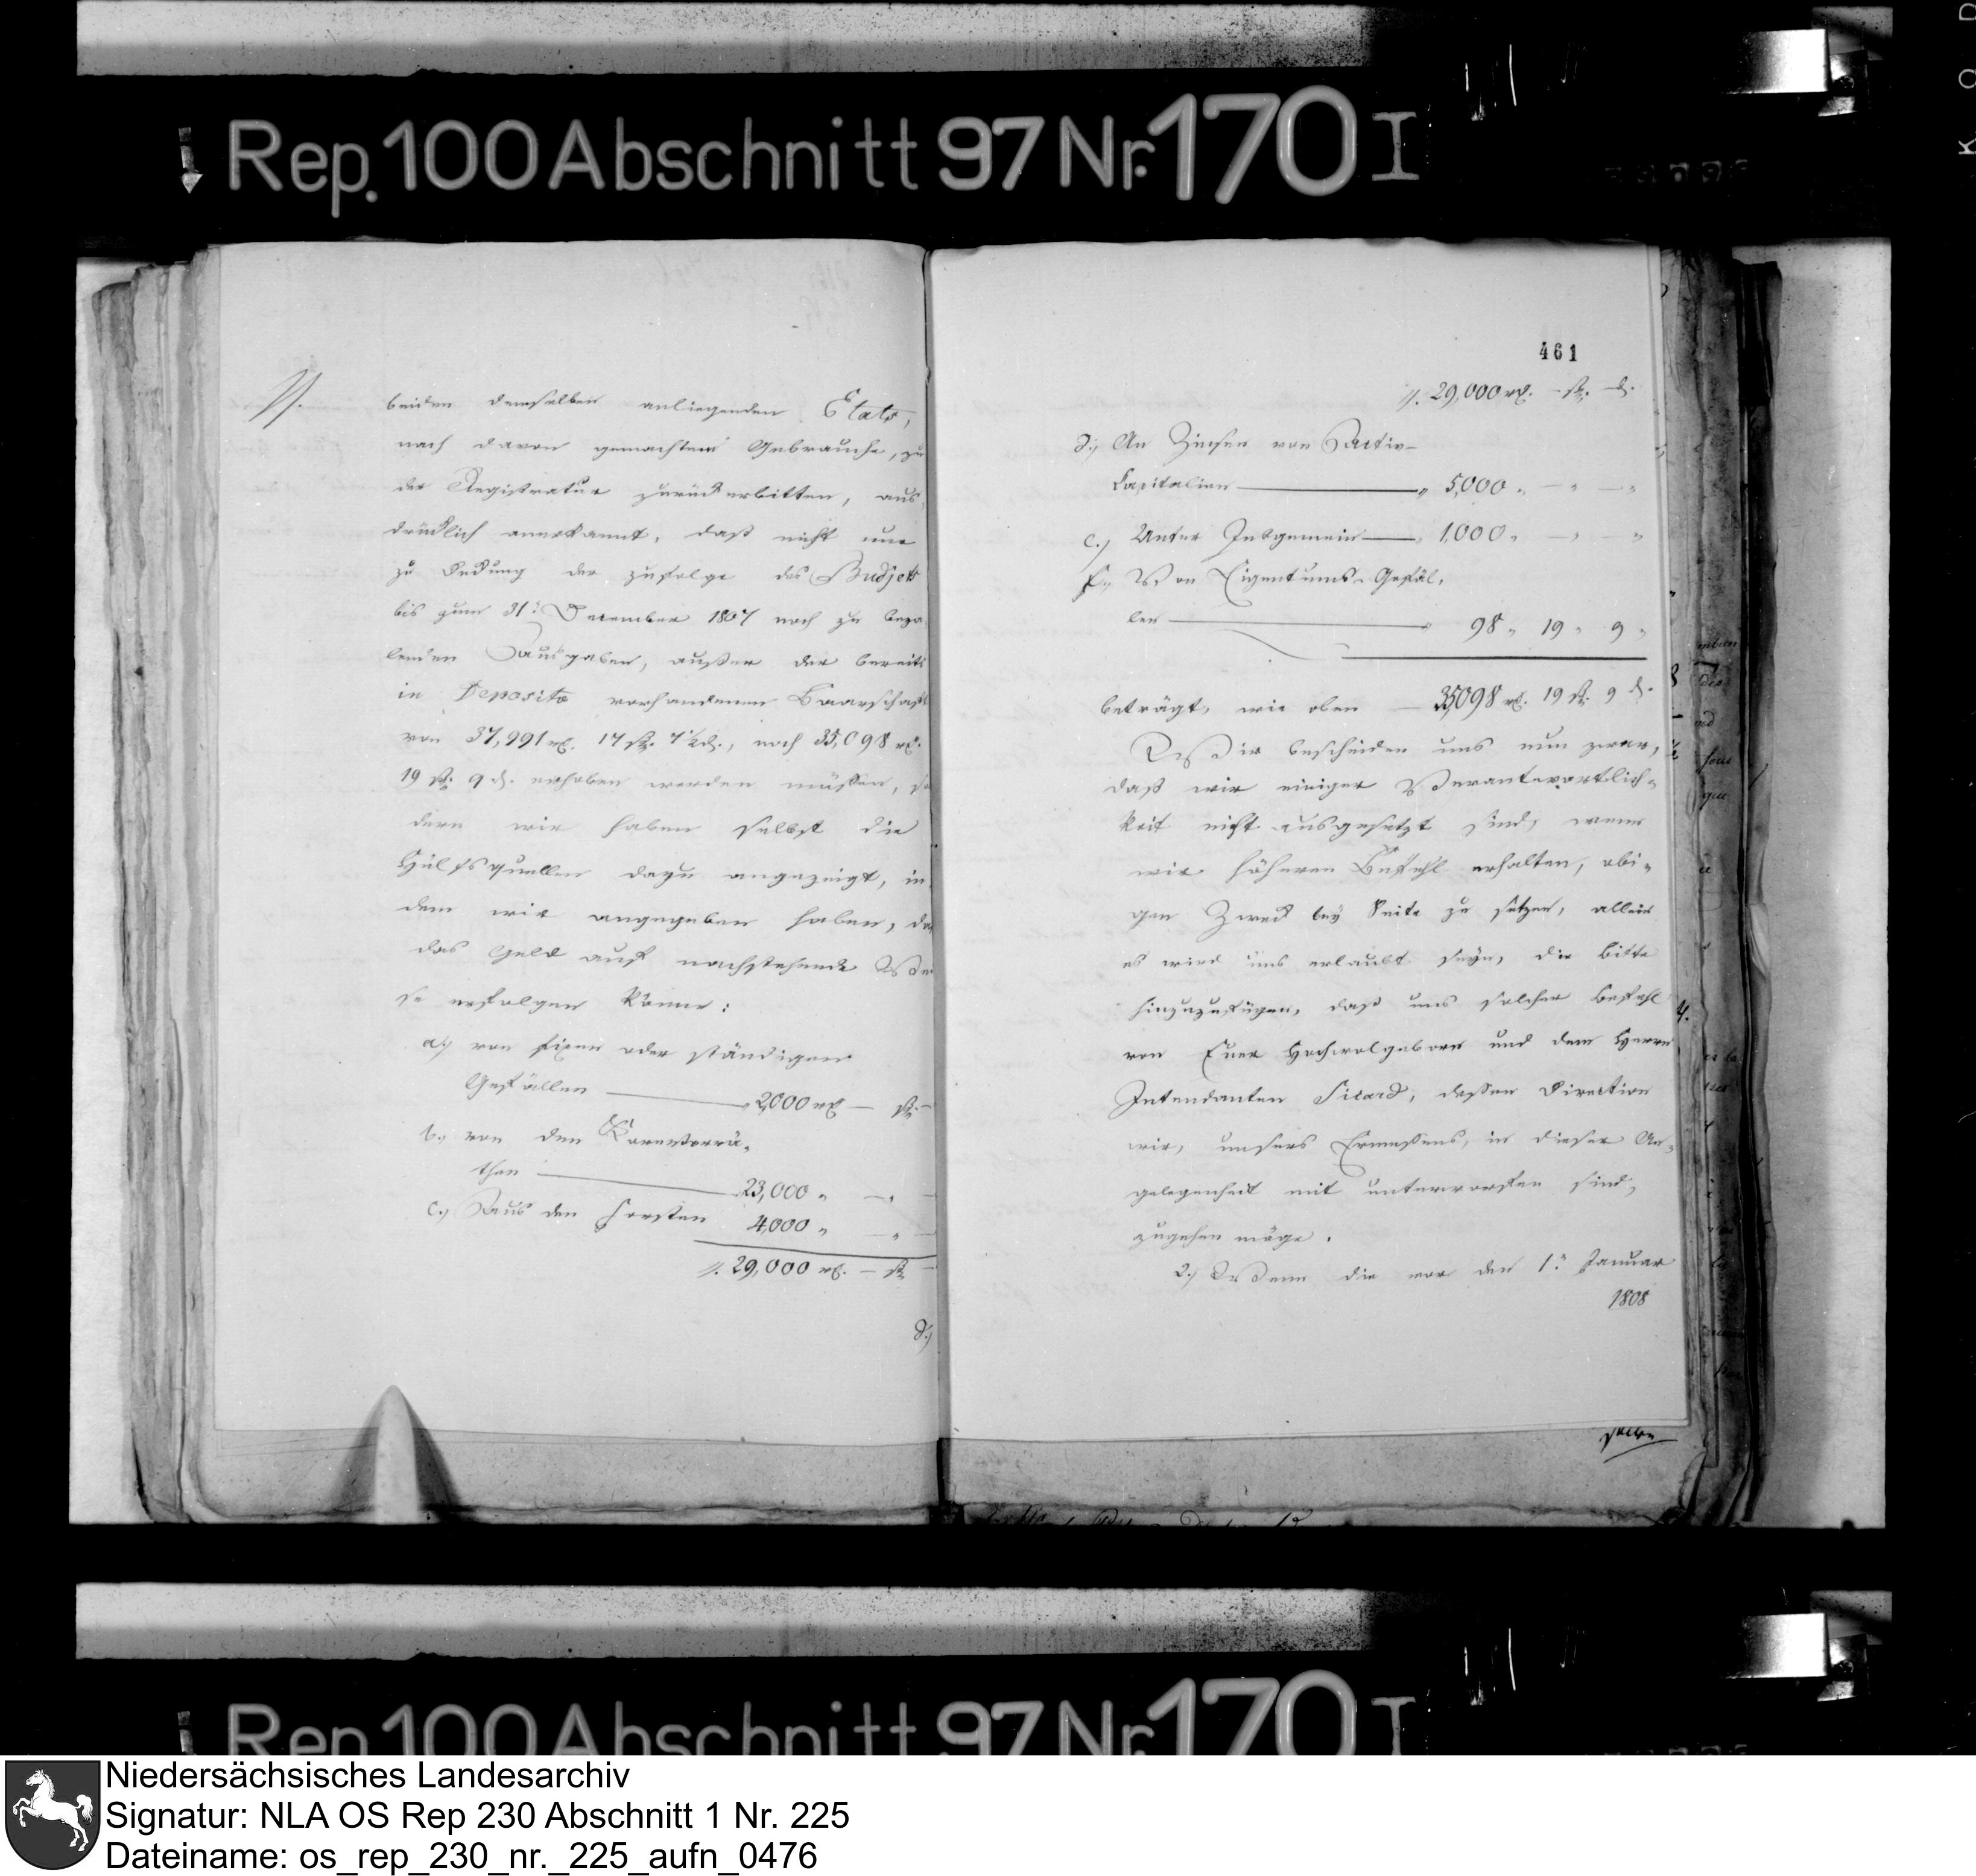 Rep. 100 Abschnitt 97 Nr. 170 I
beiden demselben anliegenden Etats,
nach davon gemachtem Gebrauche, zu
der Registratur zurückerbitten, aus
drücklich anerkannt, daß nicht nur
zu Deckung der zufolge des Budjets
bis zum 31. December 1807 noch zu beza
lenden Ausgaben, außer der bereits
in Deposito vorhandenen Baarschaft
von 37,991 rt. 17 ß. 7½ d., noch 35,098 rt.
19 ß. 9 d. erhoben werden müßen, so
dern wir haben selbst die
Hülfsquellen dazu angezeigt, in
dem wir angegeben haben, da
das Geld auf nachstehende We
se erfolgen könne:
a.) von fixen oder ständigen
Gefällen — 2,000 rt — ß. —
b.) von den Kornvorrä-
then — 23,000 " — " —
c.) Aus den Forsten 4,000 " — " —
//. 29,000 rt. — ß —
d.)
461
//. 29,000 rt. — ß. — d.
d.) An Zinsen von Activ-
Capitalien — " 5,000 " — " — "
e.) Unter Insgemein — " 1,000 " — " — "
f.) Von Eigentums-Gefäl-
len — " 98 " 19 " 9 "
beträgt, wie oben — 35,098 rt. 19 ß. 9 d.
Wir bescheiden uns nun zwar,
daß wir einiger Verantwortlich-
keit nicht ausgesetzt sind, wenn
wir höheren Befehl erhalten, obi-
gen Zweck bey Seite zu setzen, allein
es wird uns erlaubt seyn, die Bitte
hinzuzufügen, daß uns solcher Befehl
von Euer Hochwolgeborn und dem Herrn
Intendanten Sicard, deßen Direction
wir, unsers Ermeßens, in dieser An-
gelegenheit mit unterworfen sind,
zugehen möge.
2.) Wenn die vor den 1. Januar
1808
Rep. 100 Abschnitt 97 Nr. 170 I
Niedersächsisches Landesarchiv
Signatur: NLA OS Rep 230 Abschnitt 1 Nr. 225
Dateiname: os_rep_230_nr._225_aufn_0476